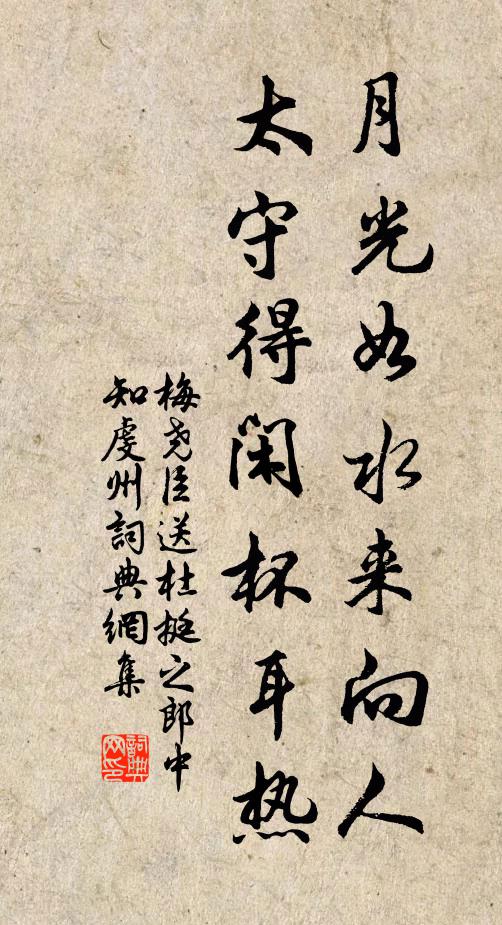 月光如水来向人
太守得闲杯耳热
梅尧臣送杜挺之郎中
知虔州詞典網集
詞典
网印